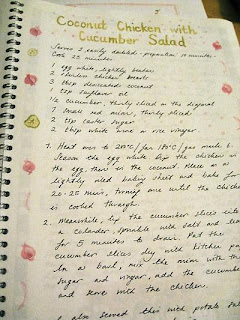 Coconut Chicken with
Cucumber Salad
Serves 2, easily doubled. preparation 10 minutes.
Cook 25 minutes
1 egg white, lightly beaten
2 chicken breasts
3 tbsp desiccated coconut
1 tsp sunflower oil
½ cucumber, thinly sliced on the diagonal
1 small red onion, thinly sliced
2 tsp caster sugar
2 tbsp white wine or rice vinegar
1. Heat oven to 200°C/fan 180°C/gas mark 6.
Season the egg white. Dip the chicken in
the egg, then in the coconut. Place on a
lightly oiled baking sheet and bake for
20-25 mins, turning once until the chicken
is cooked through.
2. Meanwhile, tip the cucumber slices into
a colander, sprinkle with salt and leave
for 5 minutes to drain. Pat the
cucumber slices dry with kitchen
In a bowl, mix the onion with the
sugar and vinegar, add the cucumber
and serve with the chicken.
I also served this with potato